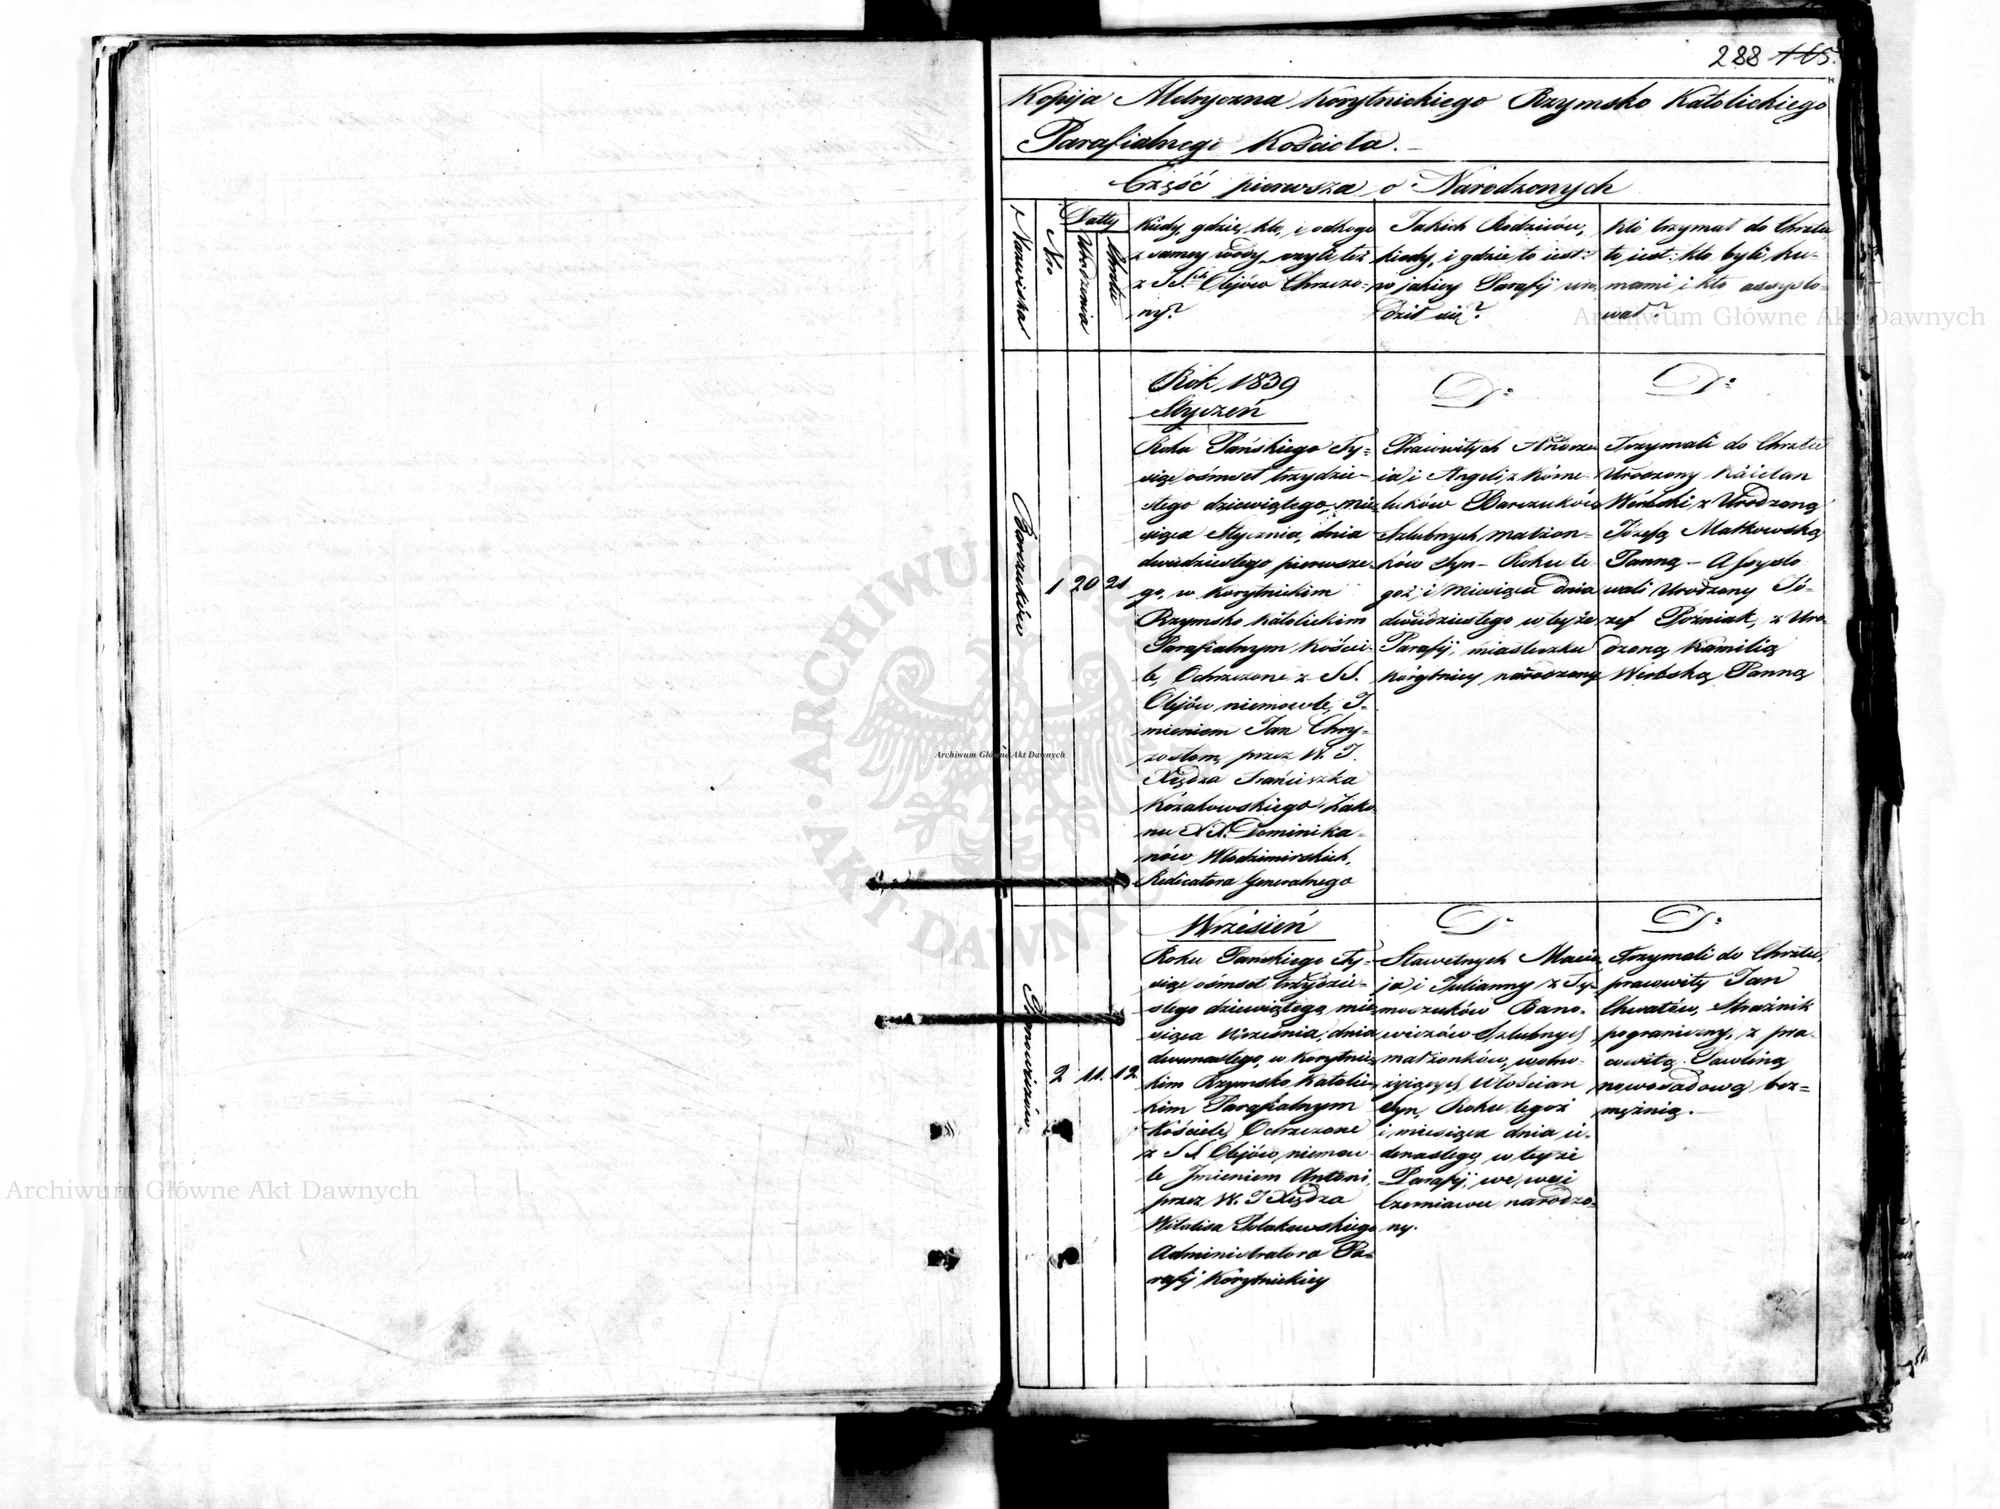 288 165.
Kopija Metryczna Korytnickiego Rzymsko Katolickiego
Parafialnego Kościoła.
Część pierwsza o Narodzonych
Nazwiska
Nro
Datty
Urodzenia
Chrztu
Kiedy, gdzie, kto, i od kogo
z samey wody, czyli też
z SS. Olejów Chrzczo-
ny?
Jakich Rodziców,
kiedy, i gdzie to iest:
w jakiey Parafij uro
dził się?
Kto trzymał do Chrztu
to iest: kto byli ku-
mami i kto assysto-
wał?
Rok 1839
Styczeń
D=
D=
Barczuków
1 20 21
Roku Pańskiego Ty=
siąc ośmset trzydzie-
stego dziewiątego, mie=
siąca Stycznia, dnia
dwudziestego pierwsze-
go, w Korytnickim
Rzymsko Katolickim
Parafialnym Koście-
le, Ochrzczone z SS.
Olejów niemowle, I-
mieniem Jan Chry-
zostom, przez W. J.
Xiędza Franciszka
Kozakowskiego Zako-
nu XX. Dominika=
nów Włodzimirskich,
Predicatora Generalnego
Pracowitych Andrze
ia i Angeli z Korne-
luków Barczuków
Szlubnych małżon-
ków Syn - Roku te-
goż, i Miesiąca dnia
dwudziestego w teyże
Parafij, miasteczku
Korytnicy narodzony
Trzymali do Chrztu
Urodzony Kaietan
Werbski, z Urodzoną
Józefą Małkowską
Panną - Assysto-
wali Urodzony Jó-
zef Poźniak, z Uro-
dzoną Kamilią
Werbską Panną
Wrzesień
D=
D=
Banowiczów.
2 11. 12
Roku Pańskiego Ty-
siąc ośmset trzydzie-
stego dziewiątego, mie
siąca Września, dnia
dwunastego, w Korytnic-
kim Rzymsko Katolic-
kim Parafialnym
Kościele, Ochrzczone
z SS. Olejów, niemow-
le Imieniem Antoni,
przez W. J Xiędza
Witalisa Polakowskiego
Administratora Pa-
rafij Korytnickiey
Sławetnych Macie
ja i Julianny z Ty-
moszuków Bano-
wiczów Szlubnych
małżonków, wolno-
żyiących, Włościan
Syn, Roku tegoż
i miesiąca dnia ie-
denastego, w teyże
Parafij, we wsi
Czerniawce narodzo-
ny.
Trzymali do Chrztu,
pracowity Jan
Chwatów, Strażnik
pograniczny, z pra-
cowitą Pawliną
nowosadową bez-
mężnią.
ARCHIWUM GŁÓWNE AKT DAWNYCH
Archiwum Główne Akt Dawnych
Archiwum Główne Akt Dawnych
Archiwum Główne Akt Dawnych